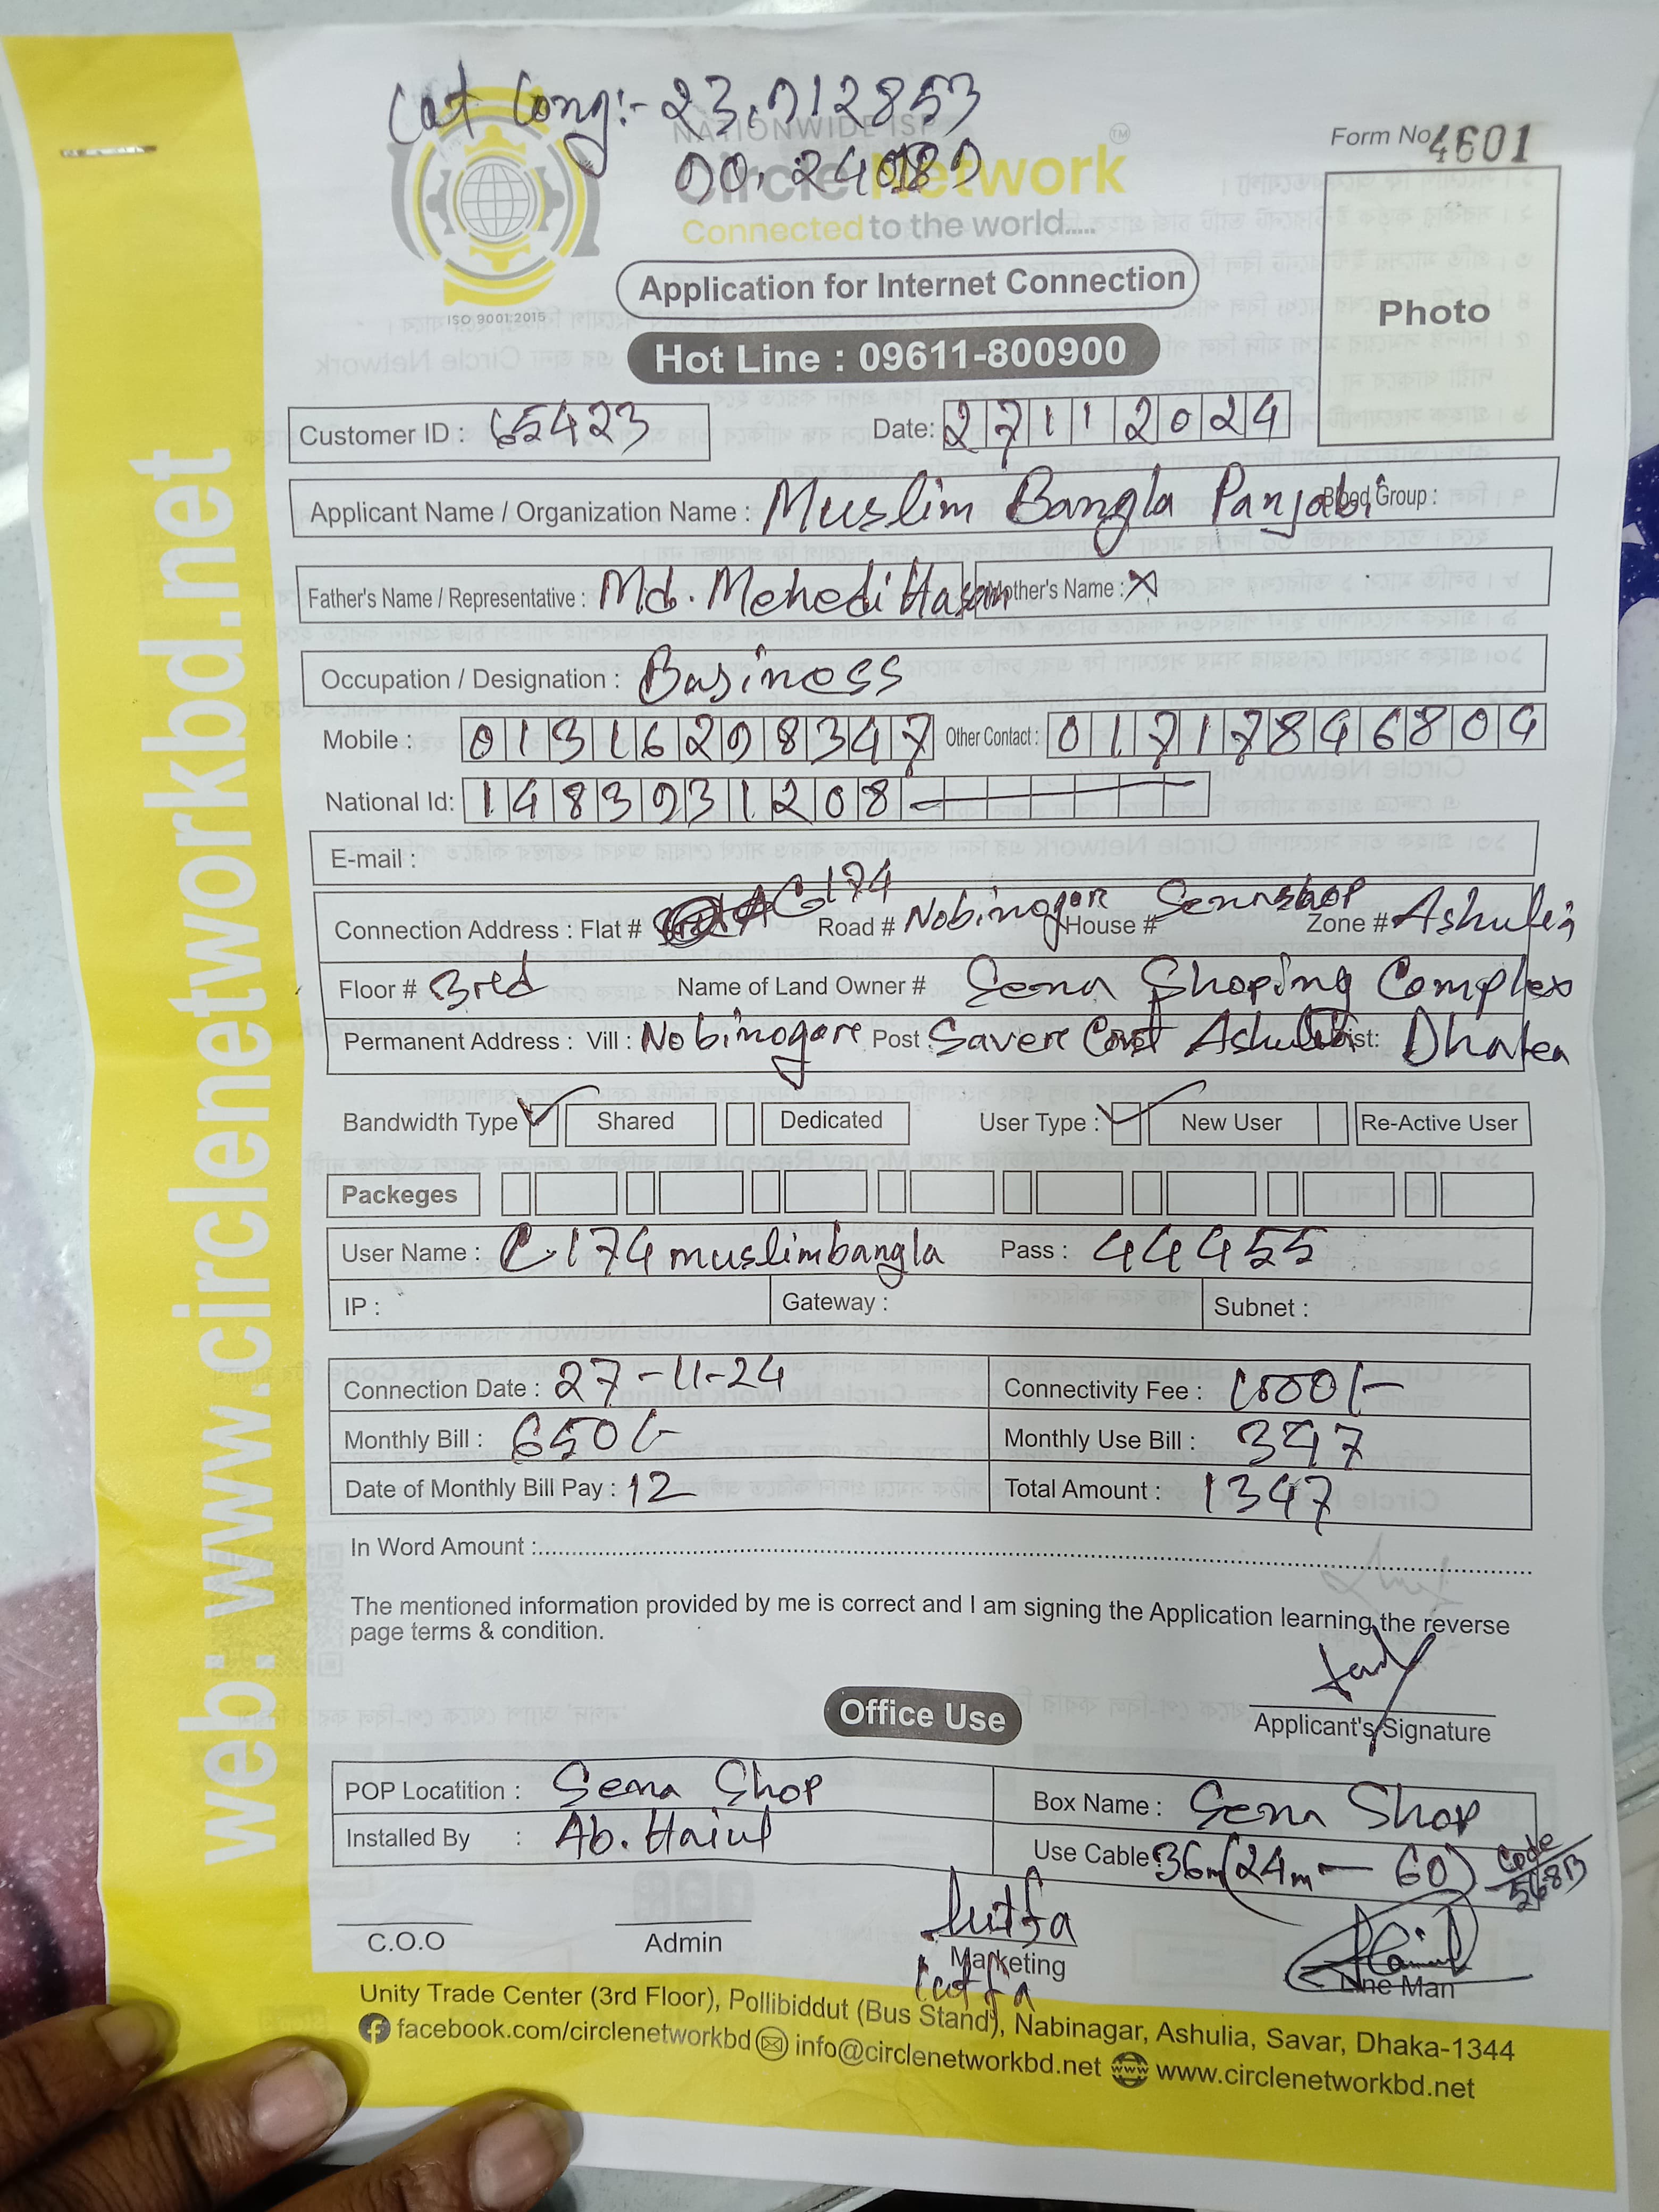 Cat Long:- 23.912853
90.24989
NATIONWIDE ISP
Circle Network
TM
Connected to the world.....
ISO 9001:2015
Form No 4601
Photo
Application for Internet Connection
Hot Line : 09611-800900
Customer ID : 65423
Date: 27112024
Applicant Name / Organization Name : Muslim Bangla Panjabi Blood Group :
Father's Name / Representative : Md. Mehedi Hasan Mother's Name : X
Occupation / Designation : Business
Mobile : 01316298347 Other Contact : 01717846804
National Id: 1483931208
E-mail :
Connection Address : Flat # G174 Road # Nobinogor House # Senashop Zone # Ashulia
Floor # 3red Name of Land Owner # Sena Shoping Complex
Permanent Address : Vill : Nobinogore Post : Saver Cant Ashulia Dist: Dhaka
Bandwidth Type Shared Dedicated User Type : New User Re-Active User
Packeges
User Name : C174muslimbangla Pass : 44455
IP : Gateway : Subnet :
Connection Date : 27-11-24 Connectivity Fee : 1000/-
Monthly Bill : 650/- Monthly Use Bill : 347
Date of Monthly Bill Pay : 12 Total Amount : 1347
In Word Amount :
The mentioned information provided by me is correct and I am signing the Application learning the reverse
page terms & condition.
Applicant's Signature
Office Use
POP Locatition : Sena Shop Box Name : Sena Shop
Installed By : Ab. Haiul Use Cable : 36m (24m — 60) Code
568B
C.O.O Admin Lutfa Marketing Line Man
Lutfa
Unity Trade Center (3rd Floor), Pollibiddut (Bus Stand), Nabinagar, Ashulia, Savar, Dhaka-1344
facebook.com/circlenetworkbd info@circlenetworkbd.net www www.circlenetworkbd.net
web: www.circlenetworkbd.net